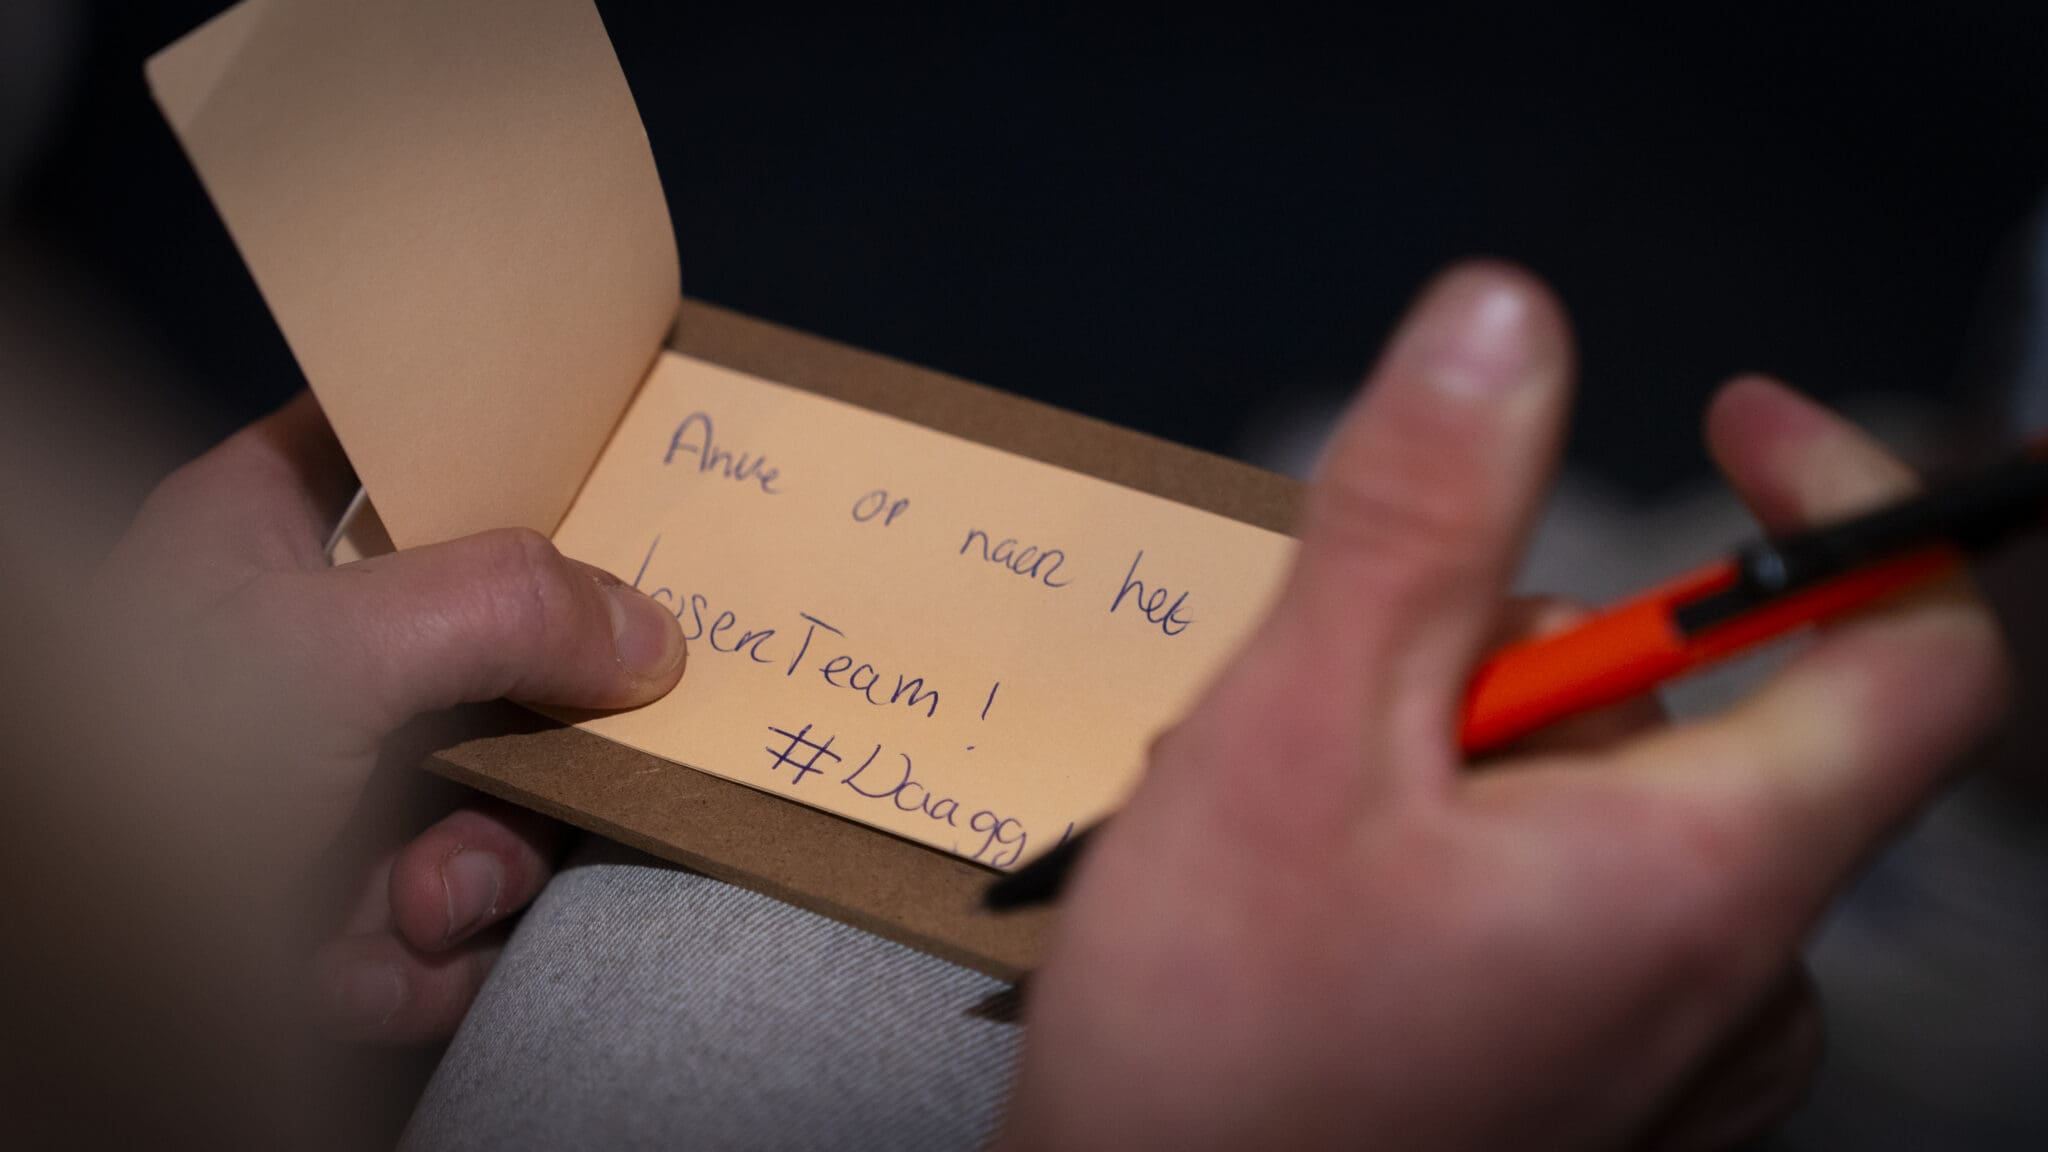 Anne op naar het
loserTeam!
#Daagg